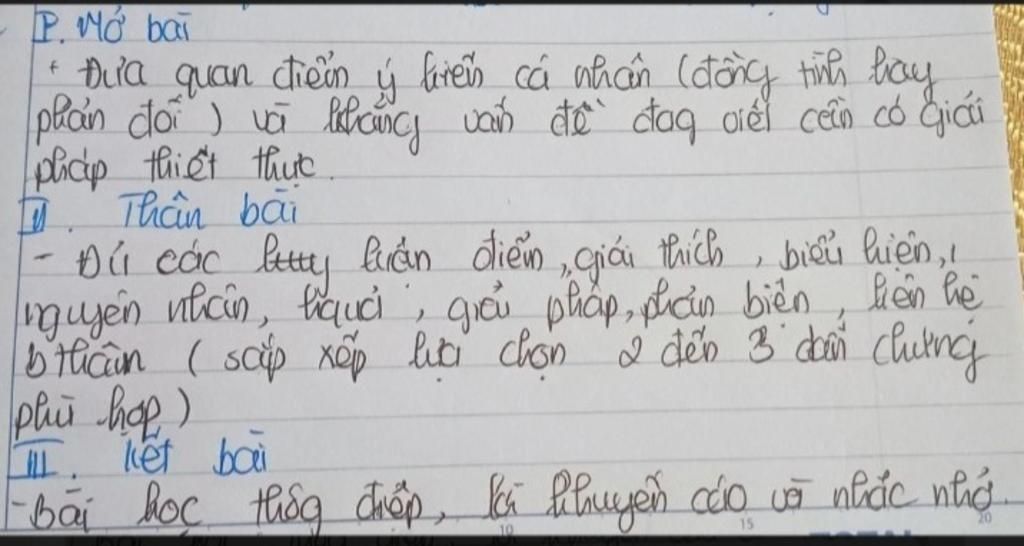 I. Mở bài
+ Đưa quan điểm ý kiến cá nhân (đồng tình hay
phản đối) và khẳng vấn đề đag viết cần có giải
pháp thiết thực.
II. Thân bài
- Đủ các luận điểm, giải thích, biểu hiện,
nguyên nhân, hquả, giải pháp, phản biện, liên hệ
bthân (sắp xếp lựa chọn 2 đến 3 dẫn chứng
phù hợp)
III. Kết bài
- Bài học thôg điệp, lời khuyến cáo và nhắc nhở.
10 15 20